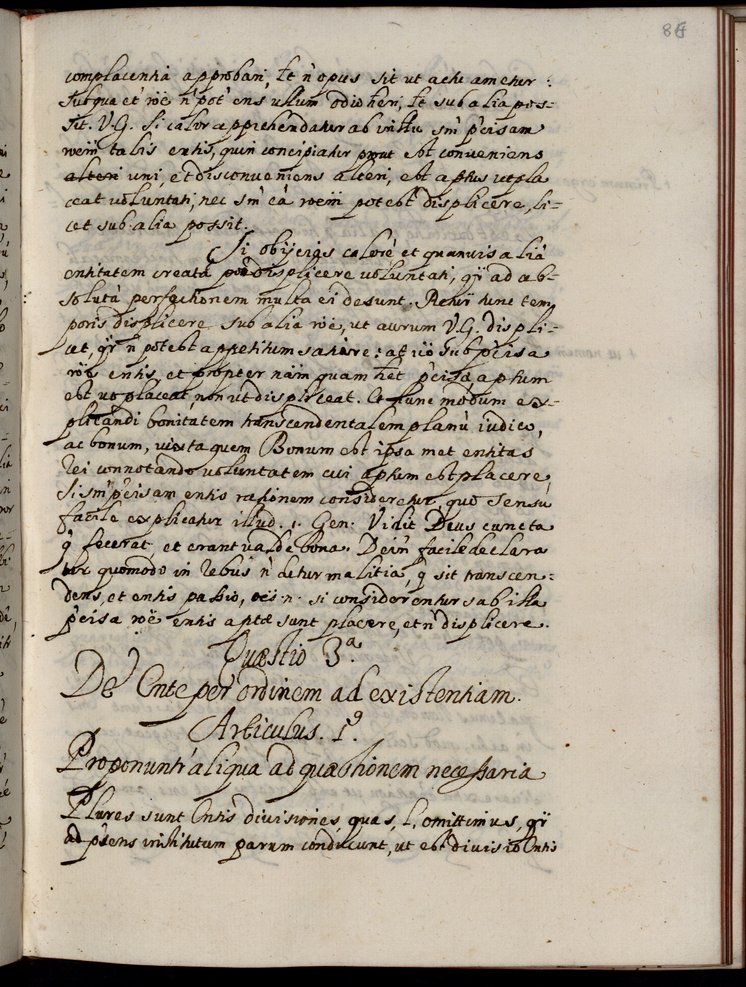 86
complacentiâ approbari, lt n̄ opus sit ut actu ametur:
sub qua et rōē n̄ pot' ens ullum odio heri, lt sub alia pos-
sit. V.G. Si calor apprehendatur ab intellu sm̄ p̄cisam
roēm talis entis, quin concipiatur prout est conveniens
alteri uni, et disconveniens alteri, est aptus ut pla
ceat voluntati, nec sm̄ eā roēm potest displicere, li-
cet sub alia possit.
Si obijcias calorē et quamvis aliā
entitatem creatā posse displicere voluntati, qū ad ab-
solutā perfectionem multa ei desunt. Retur tunc tem
poris displicere sub alia rōē, ut aurum V.G. displi-
cet, qū n̄ potest appetitum satiare: at vō sub p̄cisa
rōē entis, et propter nām quam het p̄cisā aptum
est ut placeat non ut displiceat. Et hunc modum ex-
plicandi bonitatem transcendentalem planū iudico,
ac bonum, iuxta quem Bonum est ipsa met entitas
rei connotando voluntatem cui aptum est placere
si sm̄ p̄cisam entis rationem consideretur, quo sensu
facile explicatur illud. 1. Gen. Vidit Deus cuncta
q̄ fecerat, et erant valde bona. Dein̄ facile declara
tur quomodo in rebus n̄ detur malitia, q̄ sit transcen-
dens, et entis passio, oēs n. si considerentur sab illa
p̄cisa rōē entis aptæ sunt placere, et n̄ displicere.
Quæstio 3ª
De Ente per ordinem ad existentiam.
Articulus. 1º.
Proponuntr̄ aliqua ad quæstionem necessaria
Plures sunt Entis divisiones, quas, l, omittimus, qū
ad p̄sens institutum parum conducunt, ut est divisio Entis